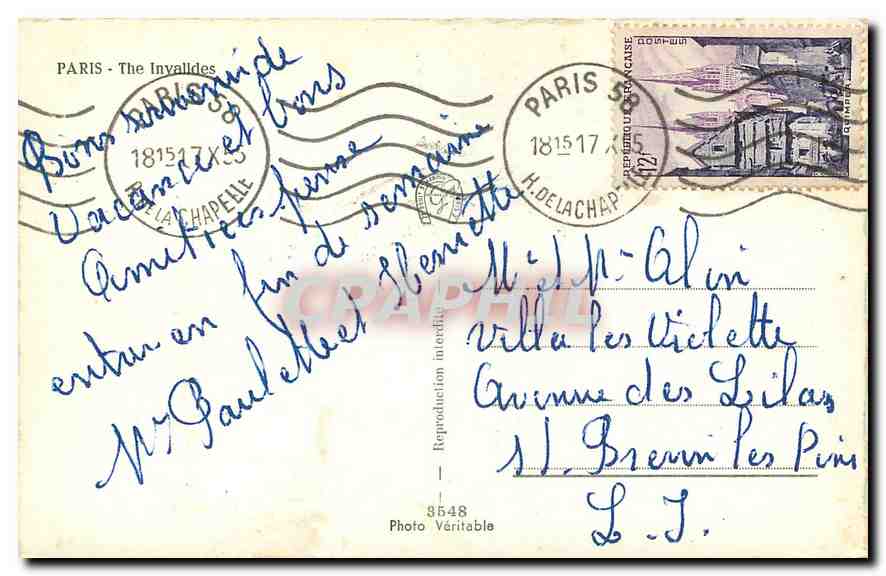 PARIS - The Invalides
Bons souvenir de
vacance et bons
Amitiées pense
entrer en fin de semaine
Mr Paul et Henriette
PARIS 58
18 15 17 X 55
R. DE LA CHAPELLE
PARIS 58
18 15 17 X 55
R. DE LA CHAPELLE
REPUBLIQUE FRANÇAISE
POSTES
QUIMPER
12F
CPAPHIL
Reproduction interdite
Mr et Mme Alin
Villa les Violette
Avenue des Lilas
St. Brevin les Pins
L. I.
3548
Photo Véritable